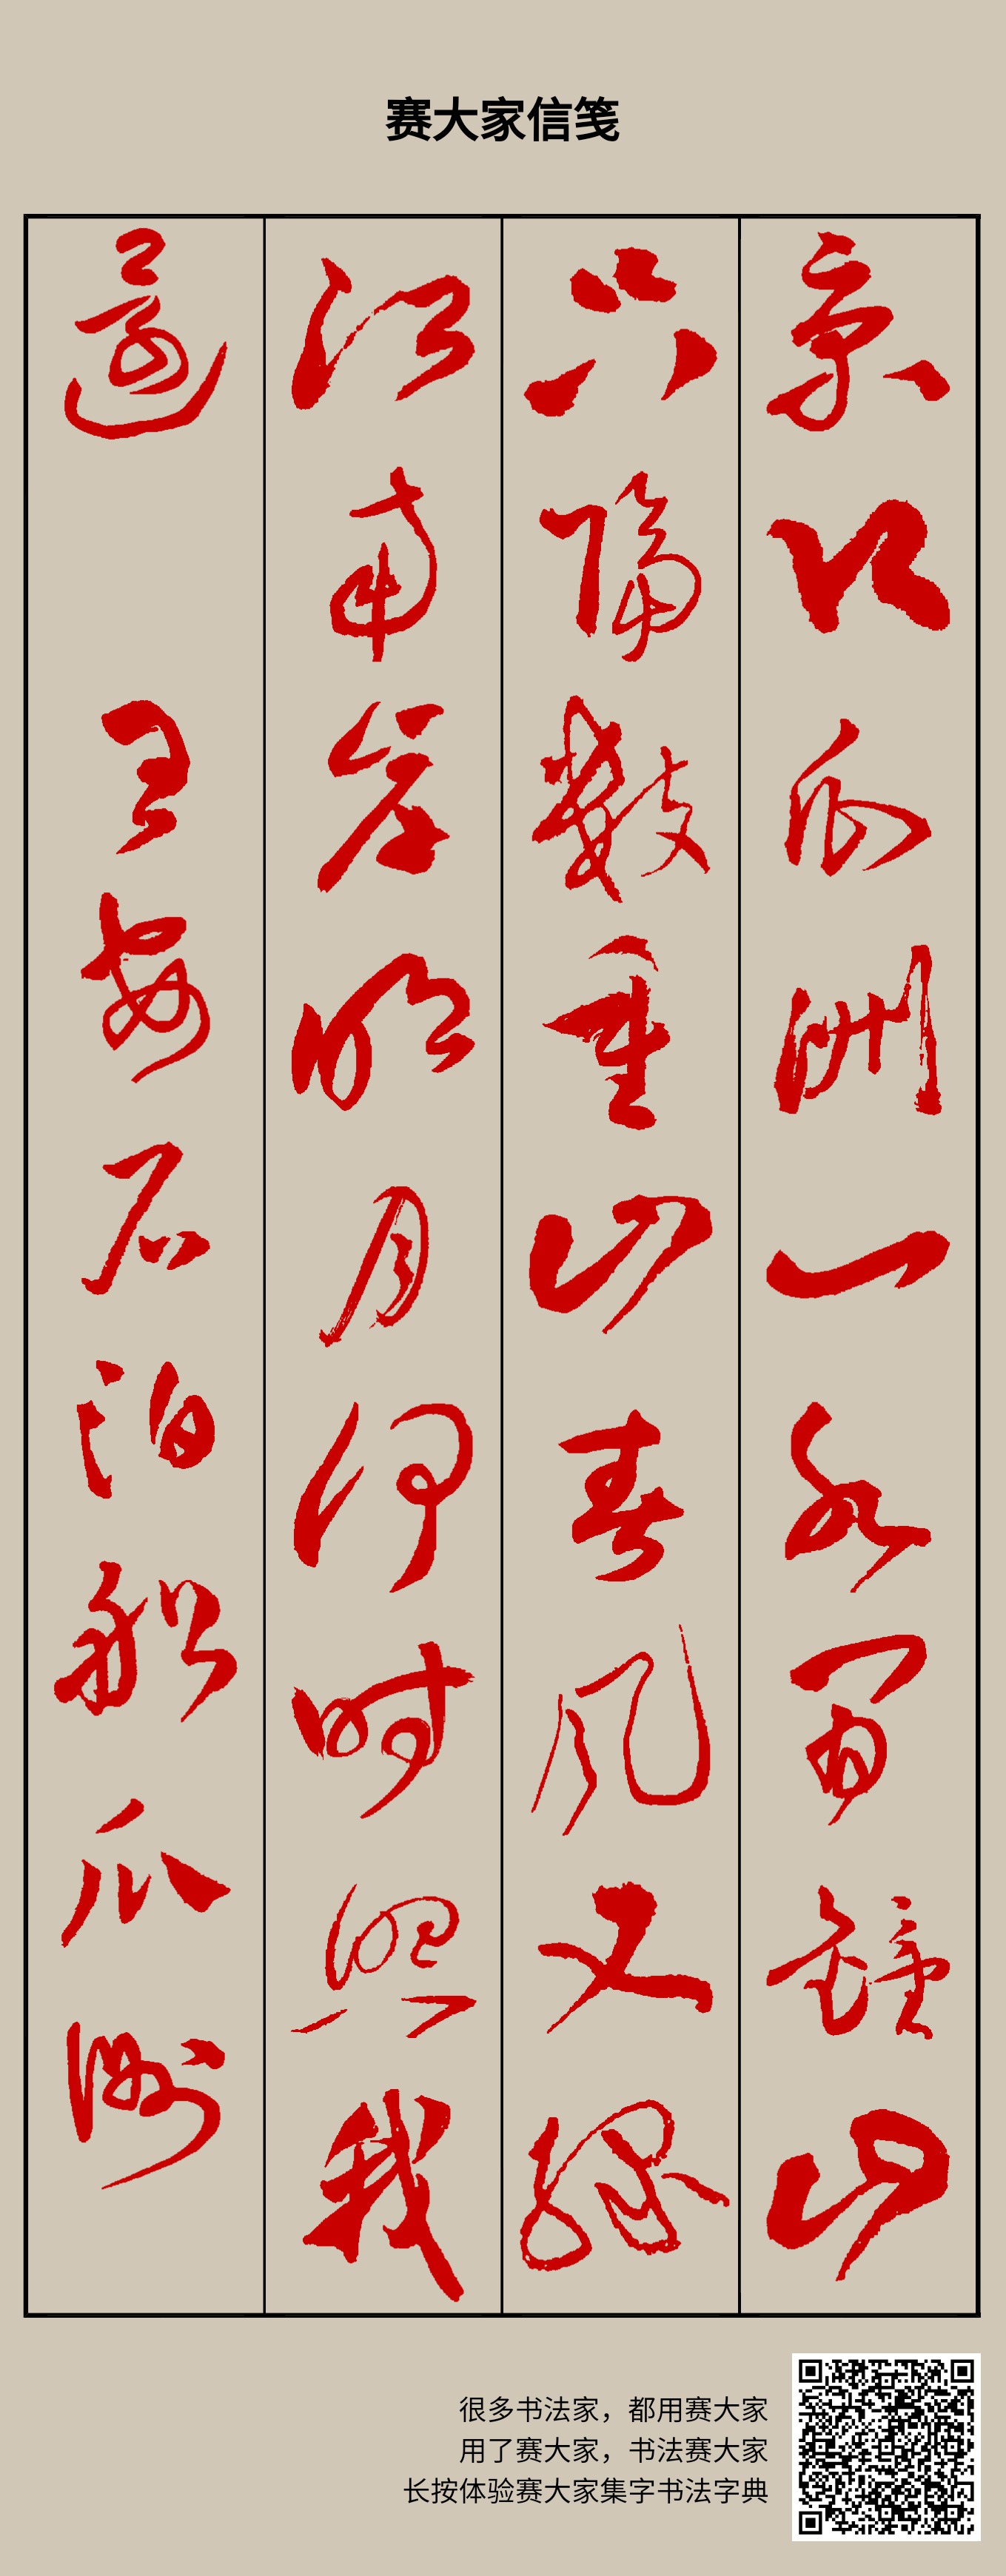 赛大家信笺
京口瓜洲一水間鐘山
只隔數重山春風又綠
江南岸明月何時照我
還 王安石泊船瓜洲
很多书法家，都用赛大家
用了赛大家，书法赛大家
长按体验赛大家集字书法字典